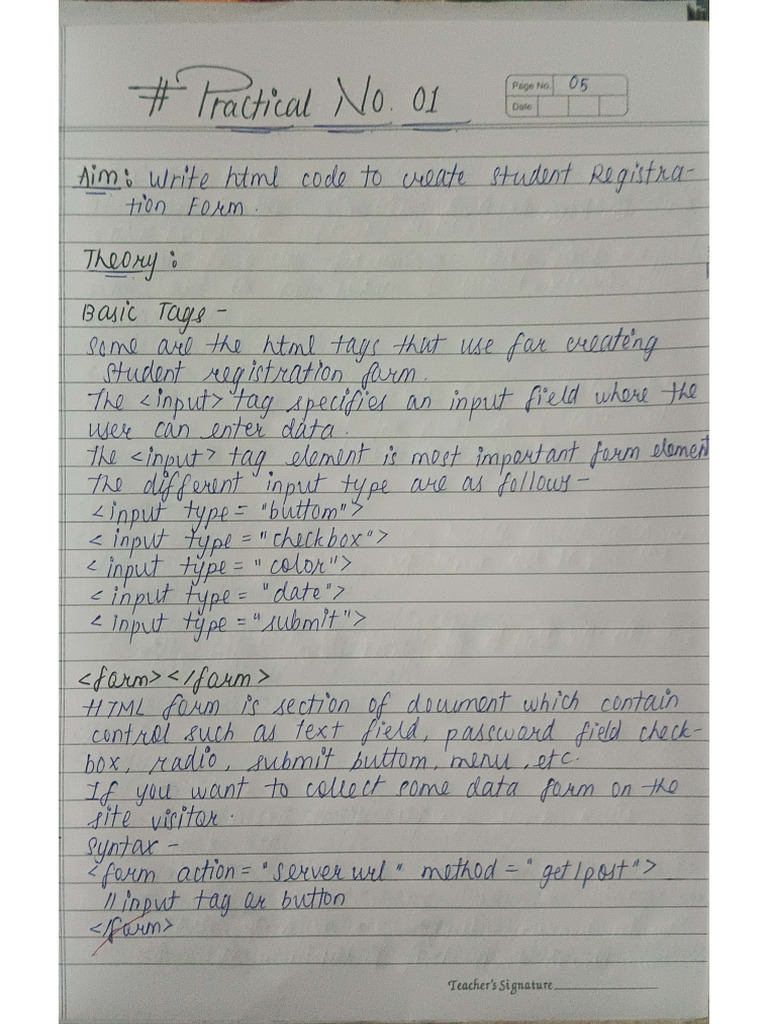 # Practical No. 01
Page No. 05
Date
Aim: Write html code to create Student Registra-
tion Form.
Theory:
Basic Tags -
Some are the html tags that use for creating
student registration form.
The <input> tag specifies an input field where the
user can enter data.
The <input> tag element is most important form element
The different input type are as follows-
<input type = "buttom">
<input type = "checkbox">
<input type = "color">
<input type = "date">
<input type = "submit">
<form></form>
HTML form is section of document which contain
control such as text field, password field check-
box, radio, submit buttom, menu, etc.
If you want to collect some data form on the
site visitor.
Syntax -
<form action = "server url" method = "get/post">
//input tag or button
</form>
Teacher's Signature